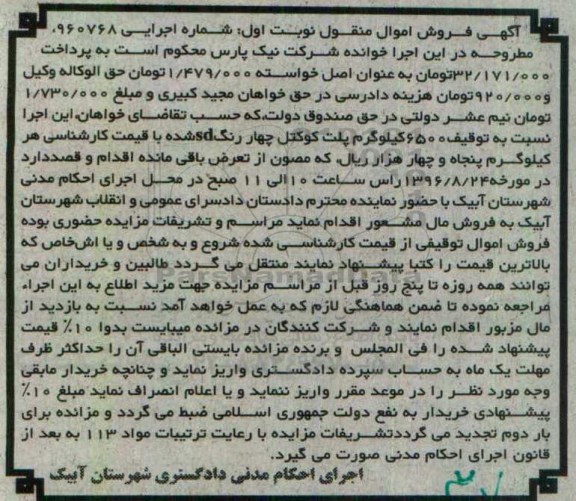 آگهی فروش اموال منقول نوبت اول: شماره اجرایی ۹۶۰۷۶۸،
مطروحه در این اجرا خوانده شرکت نیک پارس محکوم است به پرداخت
۳۲/۱۷۱/۰۰۰تومان به عنوان اصل خواسته ۱/۴۷۹/۰۰۰تومان حق الوکاله وکیل
و۹۲۰/۰۰۰تومان هزینه دادرسی در حق خواهان مجید کبیری و مبلغ ۱/۷۳۰/۰۰۰
تومان نیم عشر دولتی در حق صندوق دولت،که حسب تقاضای خواهان،این اجرا
نسبت به توقیف۶۵۰۰کیلوگرم پلت کوکتل چهار رنگsdشده با قیمت کارشناسی هر
کیلوگرم پنجاه و چهار هزار ریال، که مصون از تعرض باقی مانده اقدام و قصددارد
در مورخه۱۳۹۶/۸/۲۴راس ساعت ۱۰الی ۱۱ صبح در محل اجرای احکام مدنی
شهرستان آبیک با حضور نماینده محترم دادستان دادسرای عمومی و انقلاب شهرستان
آبیک به فروش مال مشعور اقدام نماید مراسم و تشریفات مزایده حضوری بوده
فروش اموال توقیفی از قیمت کارشناسی شده شروع و به شخص و یا اش‌خاص که
بالاترین قیمت را کتبا پیشنهاد نمایند منتقل می گردد طالبین و خریداران می
توانند همه روزه تا پنج روز قبل از مراسم مزایده جهت مزید اطلاع به این اجراء
مراجعه نموده تا ضمن هماهنگی لازم که به عمل خواهد آمد نسبت به بازدید از
مال مزبور اقدام نمایند و شرکت کنندگان در مزائده میبایست بدوا ۱۰٪ قیمت
پیشنهاد شده را فی المجلس و برنده مزائده بایستی الباقی آن را حداکثر ظرف
مهلت یک ماه به حساب سپرده دادگستری واریز نماید و چنانچه خریدار مابقی
وجه مورد نظر را در موعد مقرر واریز ننماید و یا اعلام انصراف نماید مبلغ ۱۰٪
پیشنهادی خریدار به نفع دولت جمهوری اسلامی ضبط می گردد و مزائده برای
بار دوم تجدید می گرددتشریفات مزایده با رعایت ترتیبات مواد ۱۱۳ به بعد از
قانون اجرای احکام مدنی صورت می گیرد.
اجرای احکام مدنی دادگستری شهرستان آبیک